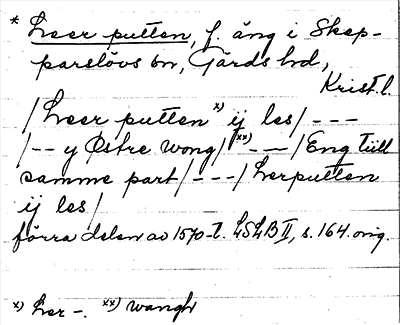 * Leer putten, f. äng i Skep-
parslövs sn, Gärds hd,
Krist. l.
/Leer putten x) ij les/ ---
/-- y Østre wong/ xx) ---/Eng tiill
samme part/---/Lerputten
ij les/
förra delen av 1570-t. LSLB II, s. 164. orig.
x) Ler -. xx) wangh